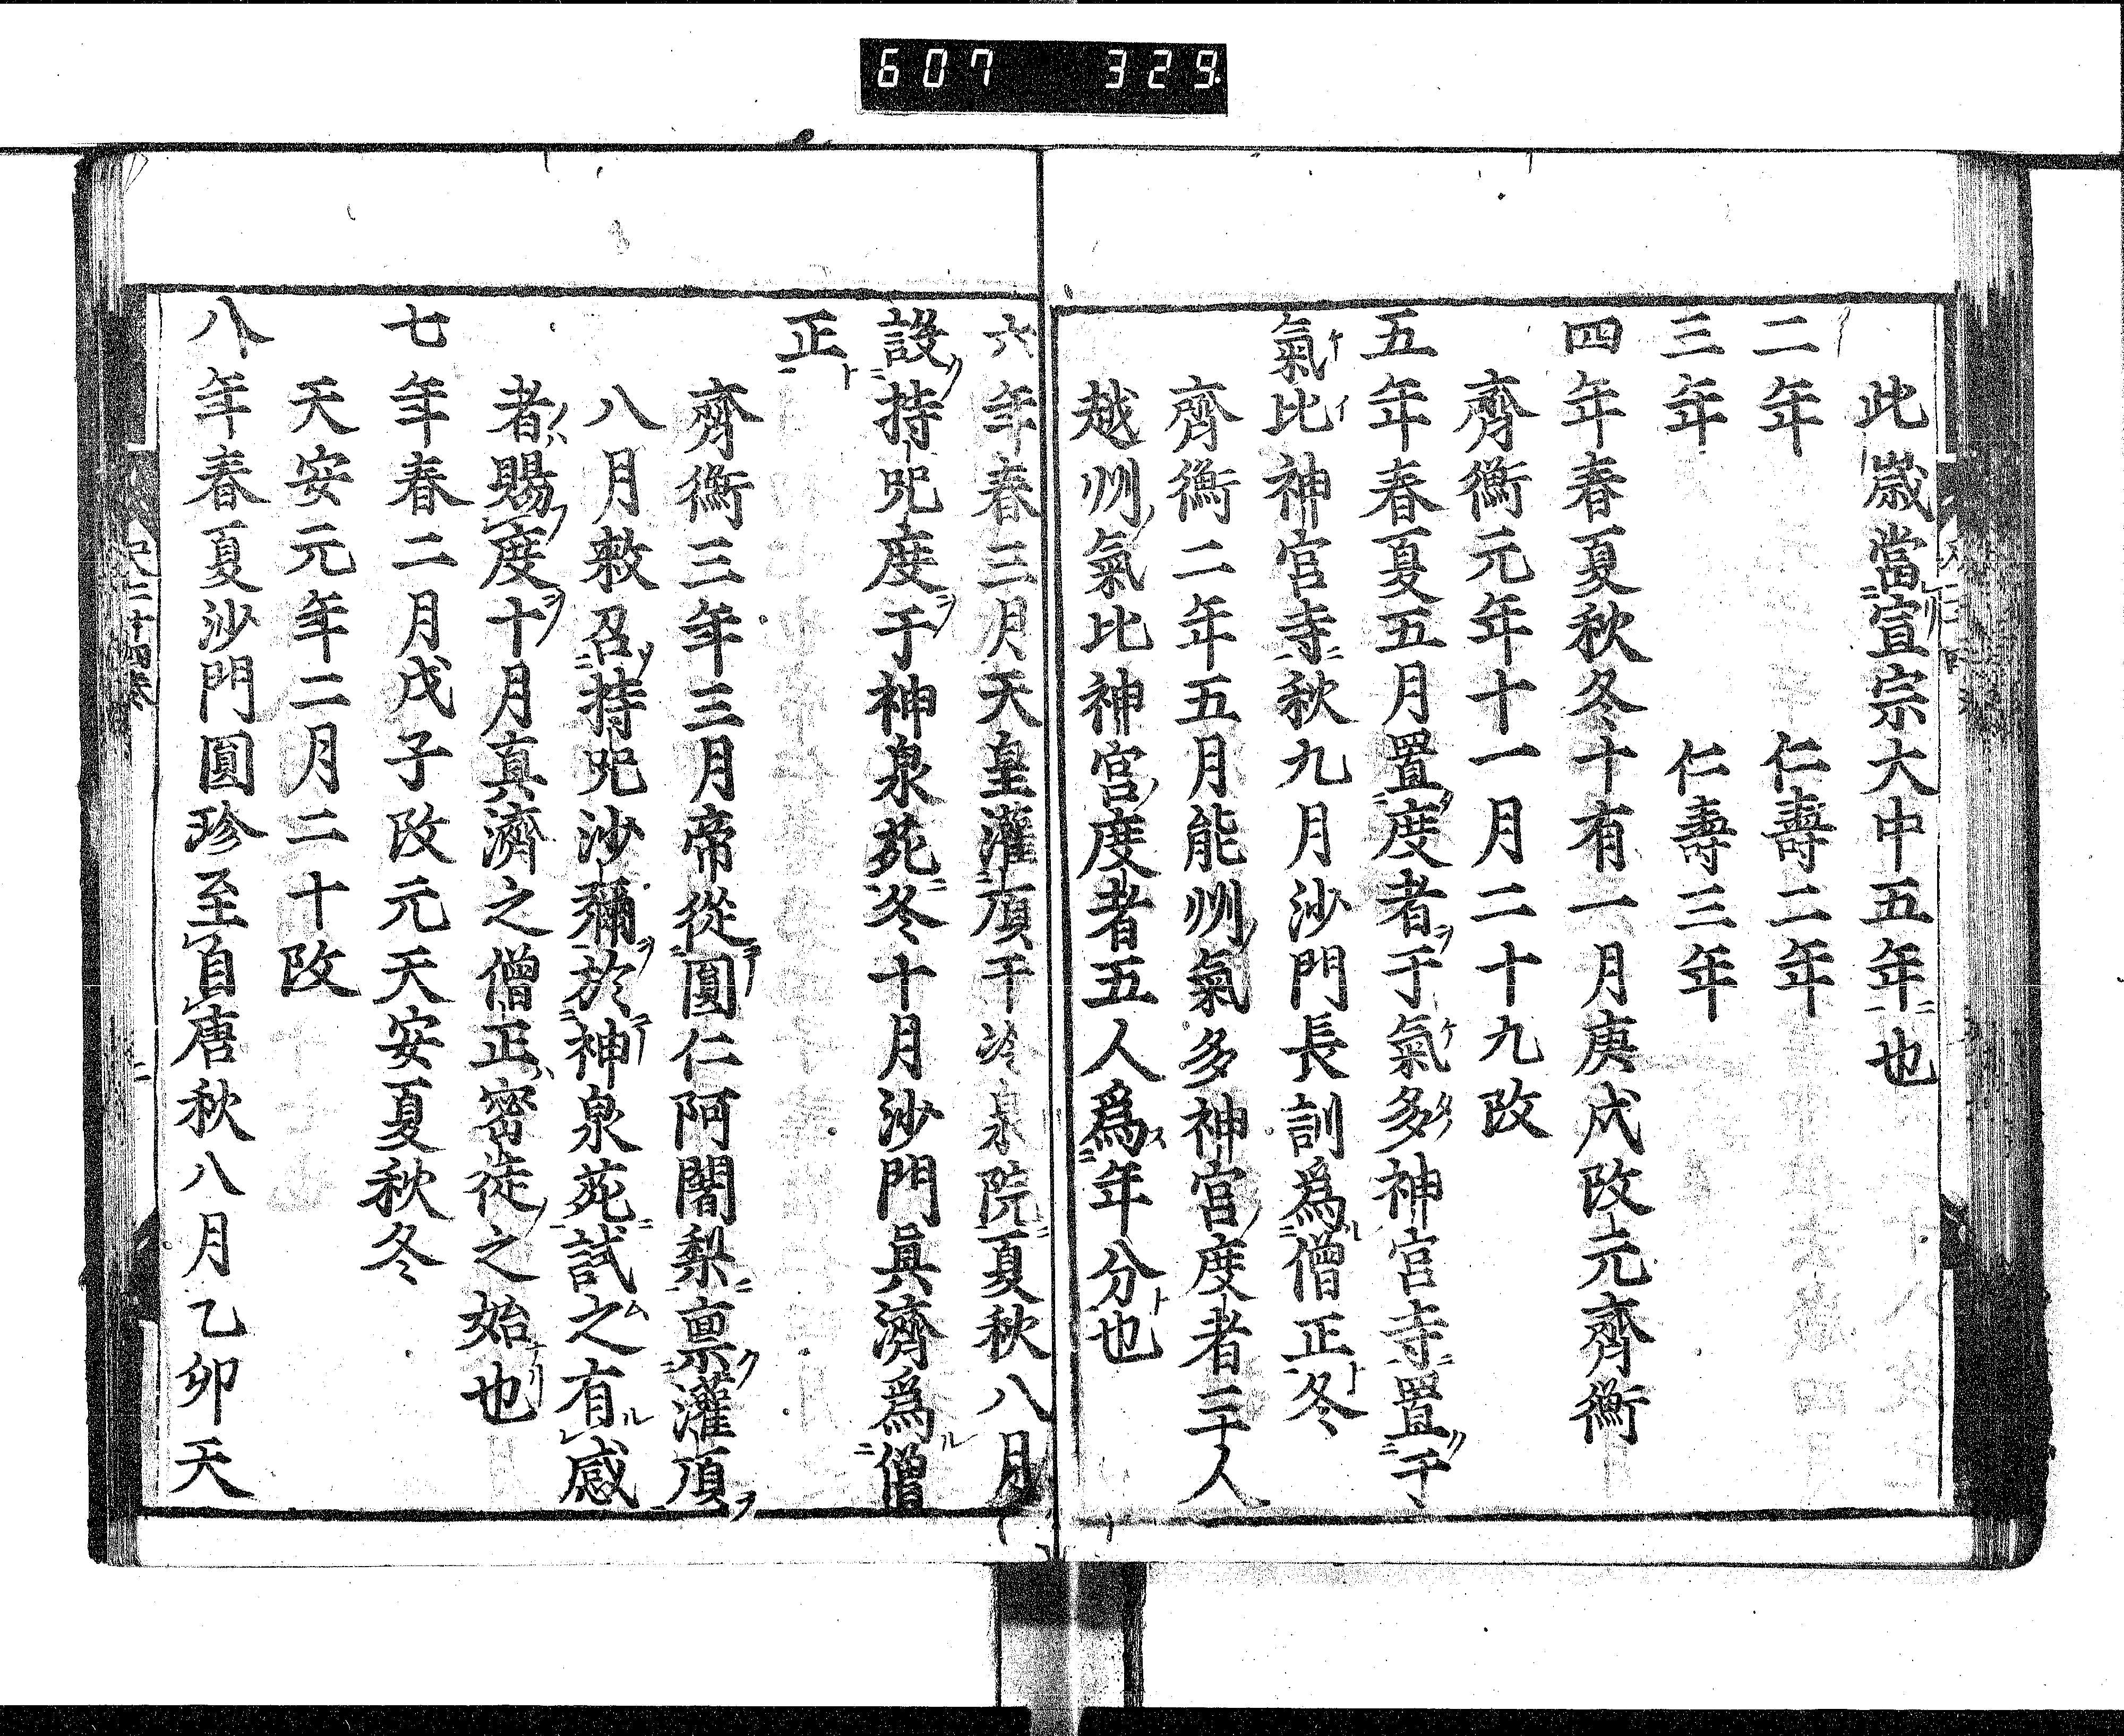 607 329
此歳當宣宗大中五年也
二年 仁壽二年
三年 仁壽三年
四年春夏秋冬十有一月庚戌改元齊衡
齊衡元年十一月二十九改
五年春夏五月置度者于氣多神宮寺置于
氣比神宮寺秋九月沙門長訓爲僧正冬
齊衡二年五月能州氣多神宮度者三十人
越州氣比神宮度者五人爲年分也
六年春三月天皇灌頂于冷泉院夏秋八月
設持咒度于神泉苑冬十月沙門眞濟爲僧
正
齊衡三年三月帝從圓仁阿闍梨禀灌頂
八月敕召持咒沙彌於神泉苑試之有感
者賜度十月真濟之僧正密徒之始也
七年春二月戊子改元天安夏秋冬
天安元年二月二十改
八年春夏沙門圓珍至自唐秋八月乙卯天